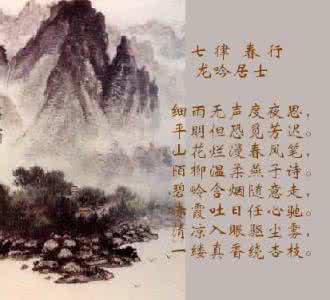 七律 春行
龙吟居士
细雨无声度夜思，
平明但恐觅芳迟。
山花烂漫春风笔，
陌柳温柔燕子诗。
碧岭含烟随意走，
霞吐日任心驰。
清凉入眼驱尘雾，
一缕真香绕杏枝。